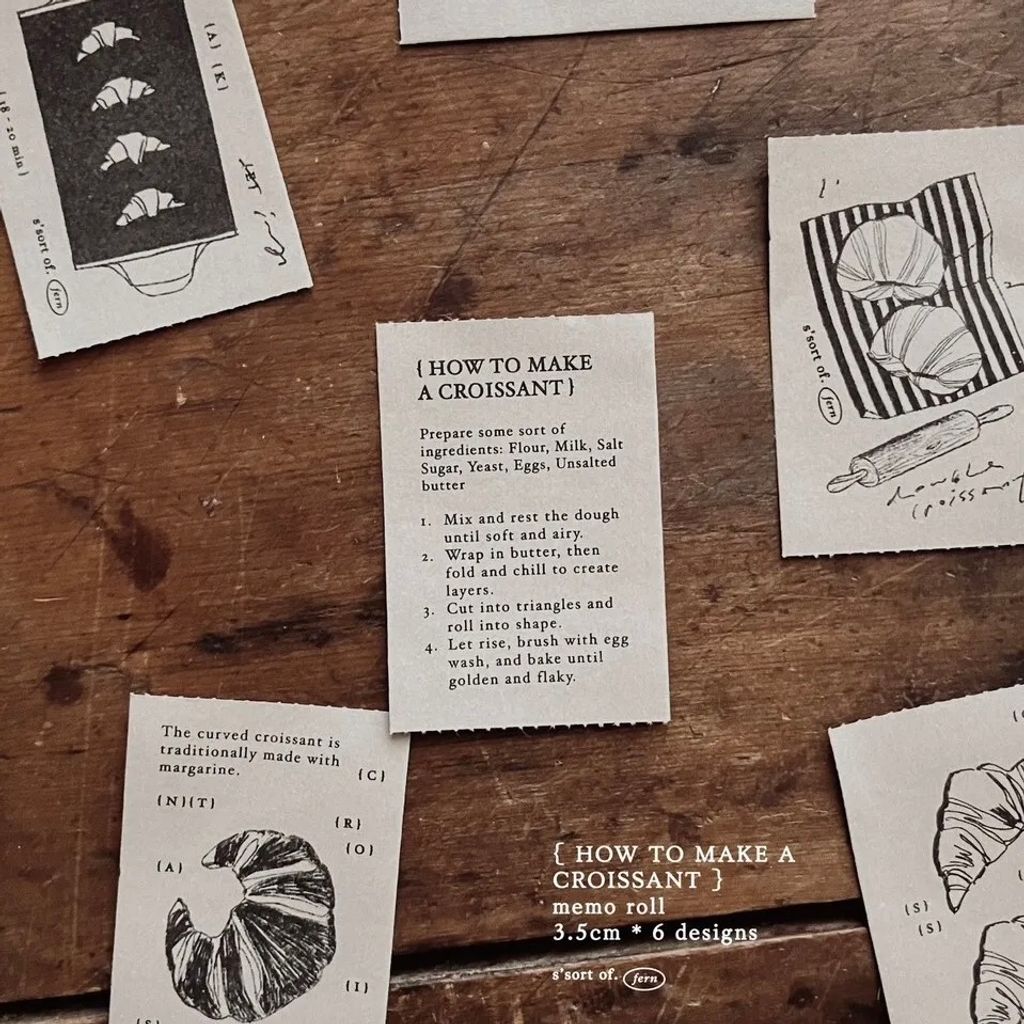 {A} {K}
(18 - 20 min)
s'sort of. fern
{ HOW TO MAKE
A CROISSANT }
Prepare some sort of
ingredients: Flour, Milk, Salt
Sugar, Yeast, Eggs, Unsalted
butter
1. Mix and rest the dough
until soft and airy.
2. Wrap in butter, then
fold and chill to create
layers.
3. Cut into triangles and
roll into shape.
4. Let rise, brush with egg
wash, and bake until
golden and flaky.
s'sort of. fern
double
croissant
The curved croissant is
traditionally made with
margarine.
{C}
{N}{T}
{R}
{O}
{A}
{I}
{S}
{S}
{S}
{ HOW TO MAKE A
CROISSANT }
memo roll
3.5cm * 6 designs
s'sort of. fern